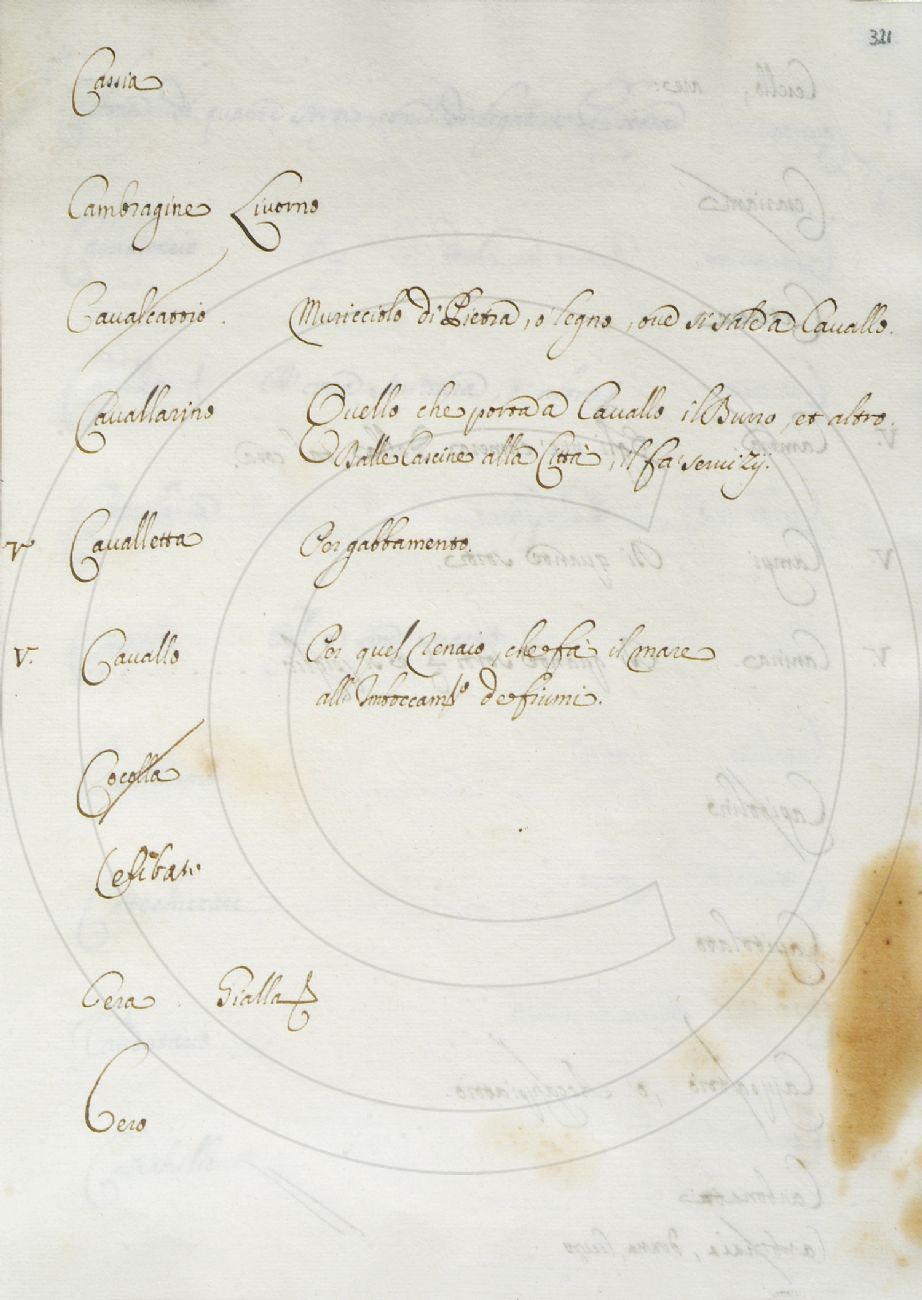 321
Cassia
Cambragine Livorno
Cavalcatoio. Muricciolo di Pietra, o legno, oue si sale à Cauallo.
Cavallarino Quello che porta à Cavallo il Burro, et altro
Dalle Cascine alla Città, il fa serui zij.
V Cavalletta Per gabbamento.
V. Cavallo Per quel Renaio, che fà il mare
all'Imboccam.to de fiumi.
Cocolla
Cera Gialla
Cero